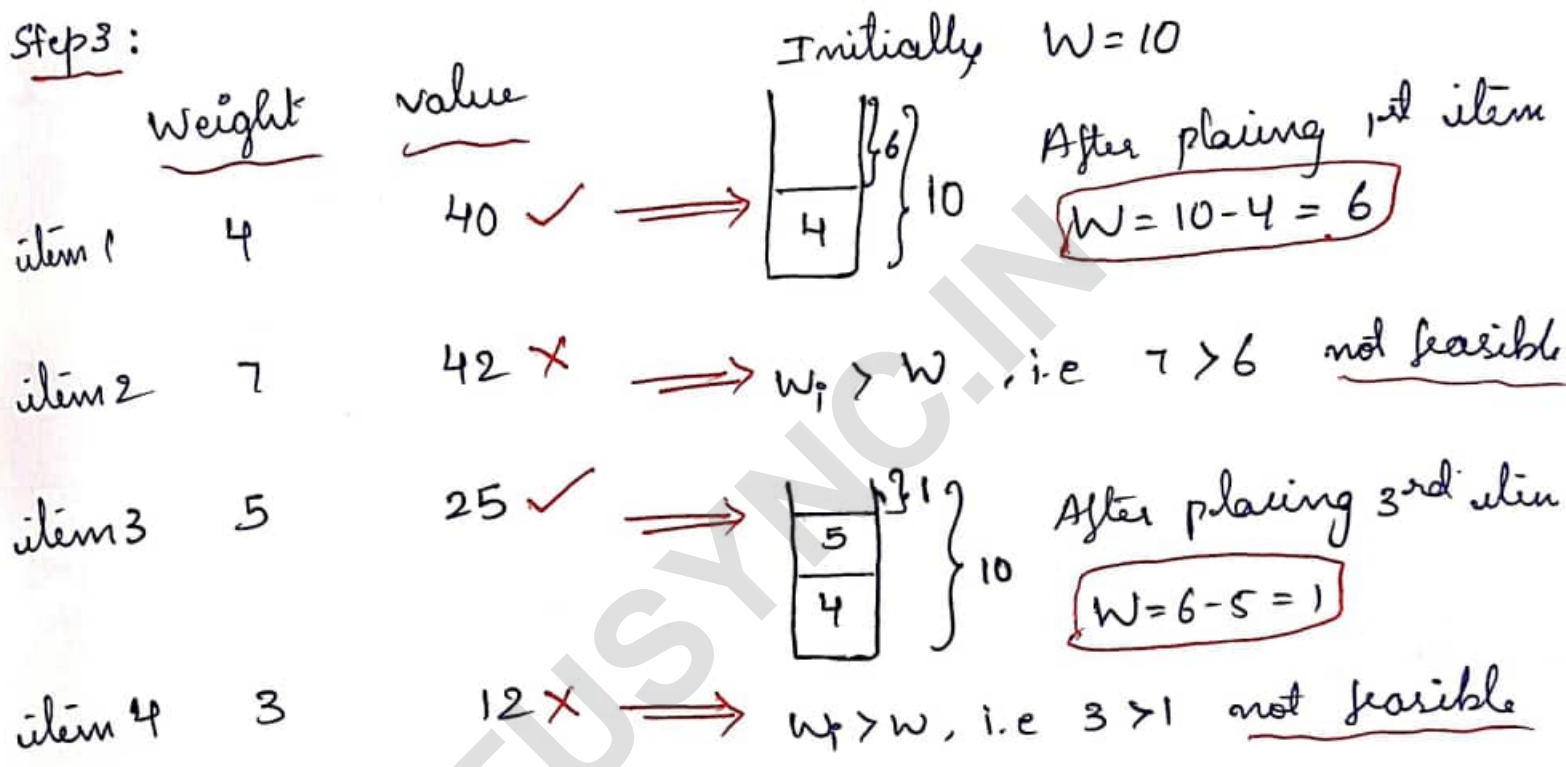 Step3:
Initially W = 10
Weight value
item 1 4 40 ✓ ⟹ 4 }6 } 10 After placing 1st item
W = 10 - 4 = 6
item 2 7 42 ✗ ⟹ wi > W , i.e 7 > 6 not feasible
item 3 5 25 ✓ ⟹ 5 4 }1 } 10 After placing 3rd item
W = 6 - 5 = 1
item 4 3 12 ✗ ⟹ wi > W, i.e 3 > 1 not feasible
TUSYNC.IN